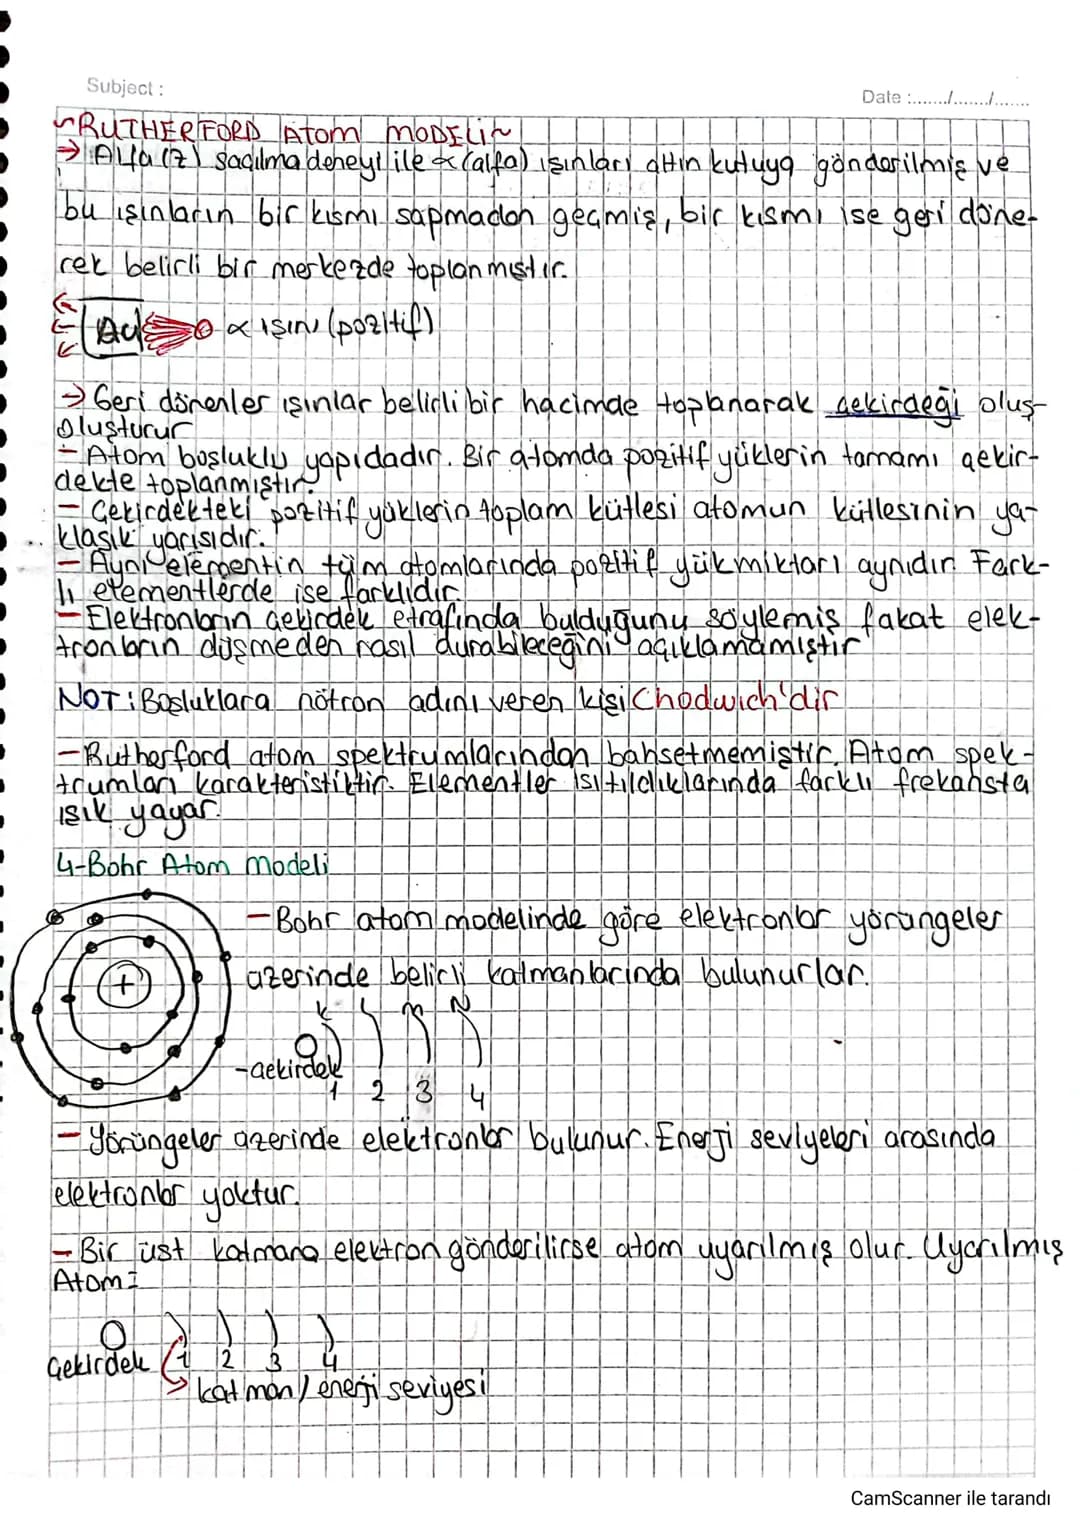 Subject :
Date :......./......./.......
~RUTHERFORD ATOM MODELİ~
→ Alfa (2) saçılma deneyi ile α (alfa) ışınları altın kutuya gönderilmiş ve
bu ışınların bir kısmı sapmadan geçmiş, bir kısmı ise geri döne-
rek belirli bir merkezde toplanmıştır.
Au α ışını (pozitif)
→ Geri dönenler ışınlar belirli bir hacimde toplanarak çekirdeği oluş-
oluşturur
- Atom boşluklu yapıdadır. Bir atomda pozitif yüklerin tamamı çekir-
dekte toplanmıştır.
- Çekirdekteki pozitif yüklerin toplam kütlesi atomun kütlesinin ya-
klaşık yarısıdır.
- Aynı elementin tüm atomlarında pozitif yük miktarı aynıdır. Fark-
lı elementlerde ise farklıdır.
- Elektronların çekirdek etrafında bulduğunu söylemiş fakat elek-
tronların düşmeden nasıl durabileceğini açıklamamıştır
NOT: Boşluklara nötron adını veren kişi Chadwich'dir
- Rutherford atom spektrumlarından bahsetmemiştir. Atom spek-
trumları karakteristiktir. Elementler ısıtıldıklarında farklı frekansta
ışık yayar.
4-Bohr Atom Modeli
+
- Bohr atom modelinde göre elektronlar yörüngeler
üzerinde belirli katmanlarında bulunurlar.
K L M N
-çekirdek
1 2 3 4
- Yörüngeler üzerinde elektronlar bulunur. Enerji seviyeleri arasında
elektronlar yoktur.
- Bir üst katmana elektron gönderilirse atom uyarılmış olur. Uyarılmış
Atom=
Çekirdek 1 2 3 4
katman / enerji seviyesi
CamScanner ile tarandı